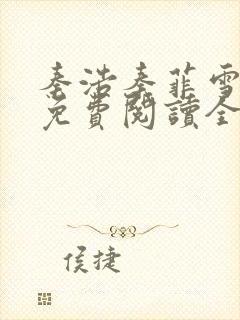 秦浩秦菲雪
免費閱讀全
侯捷